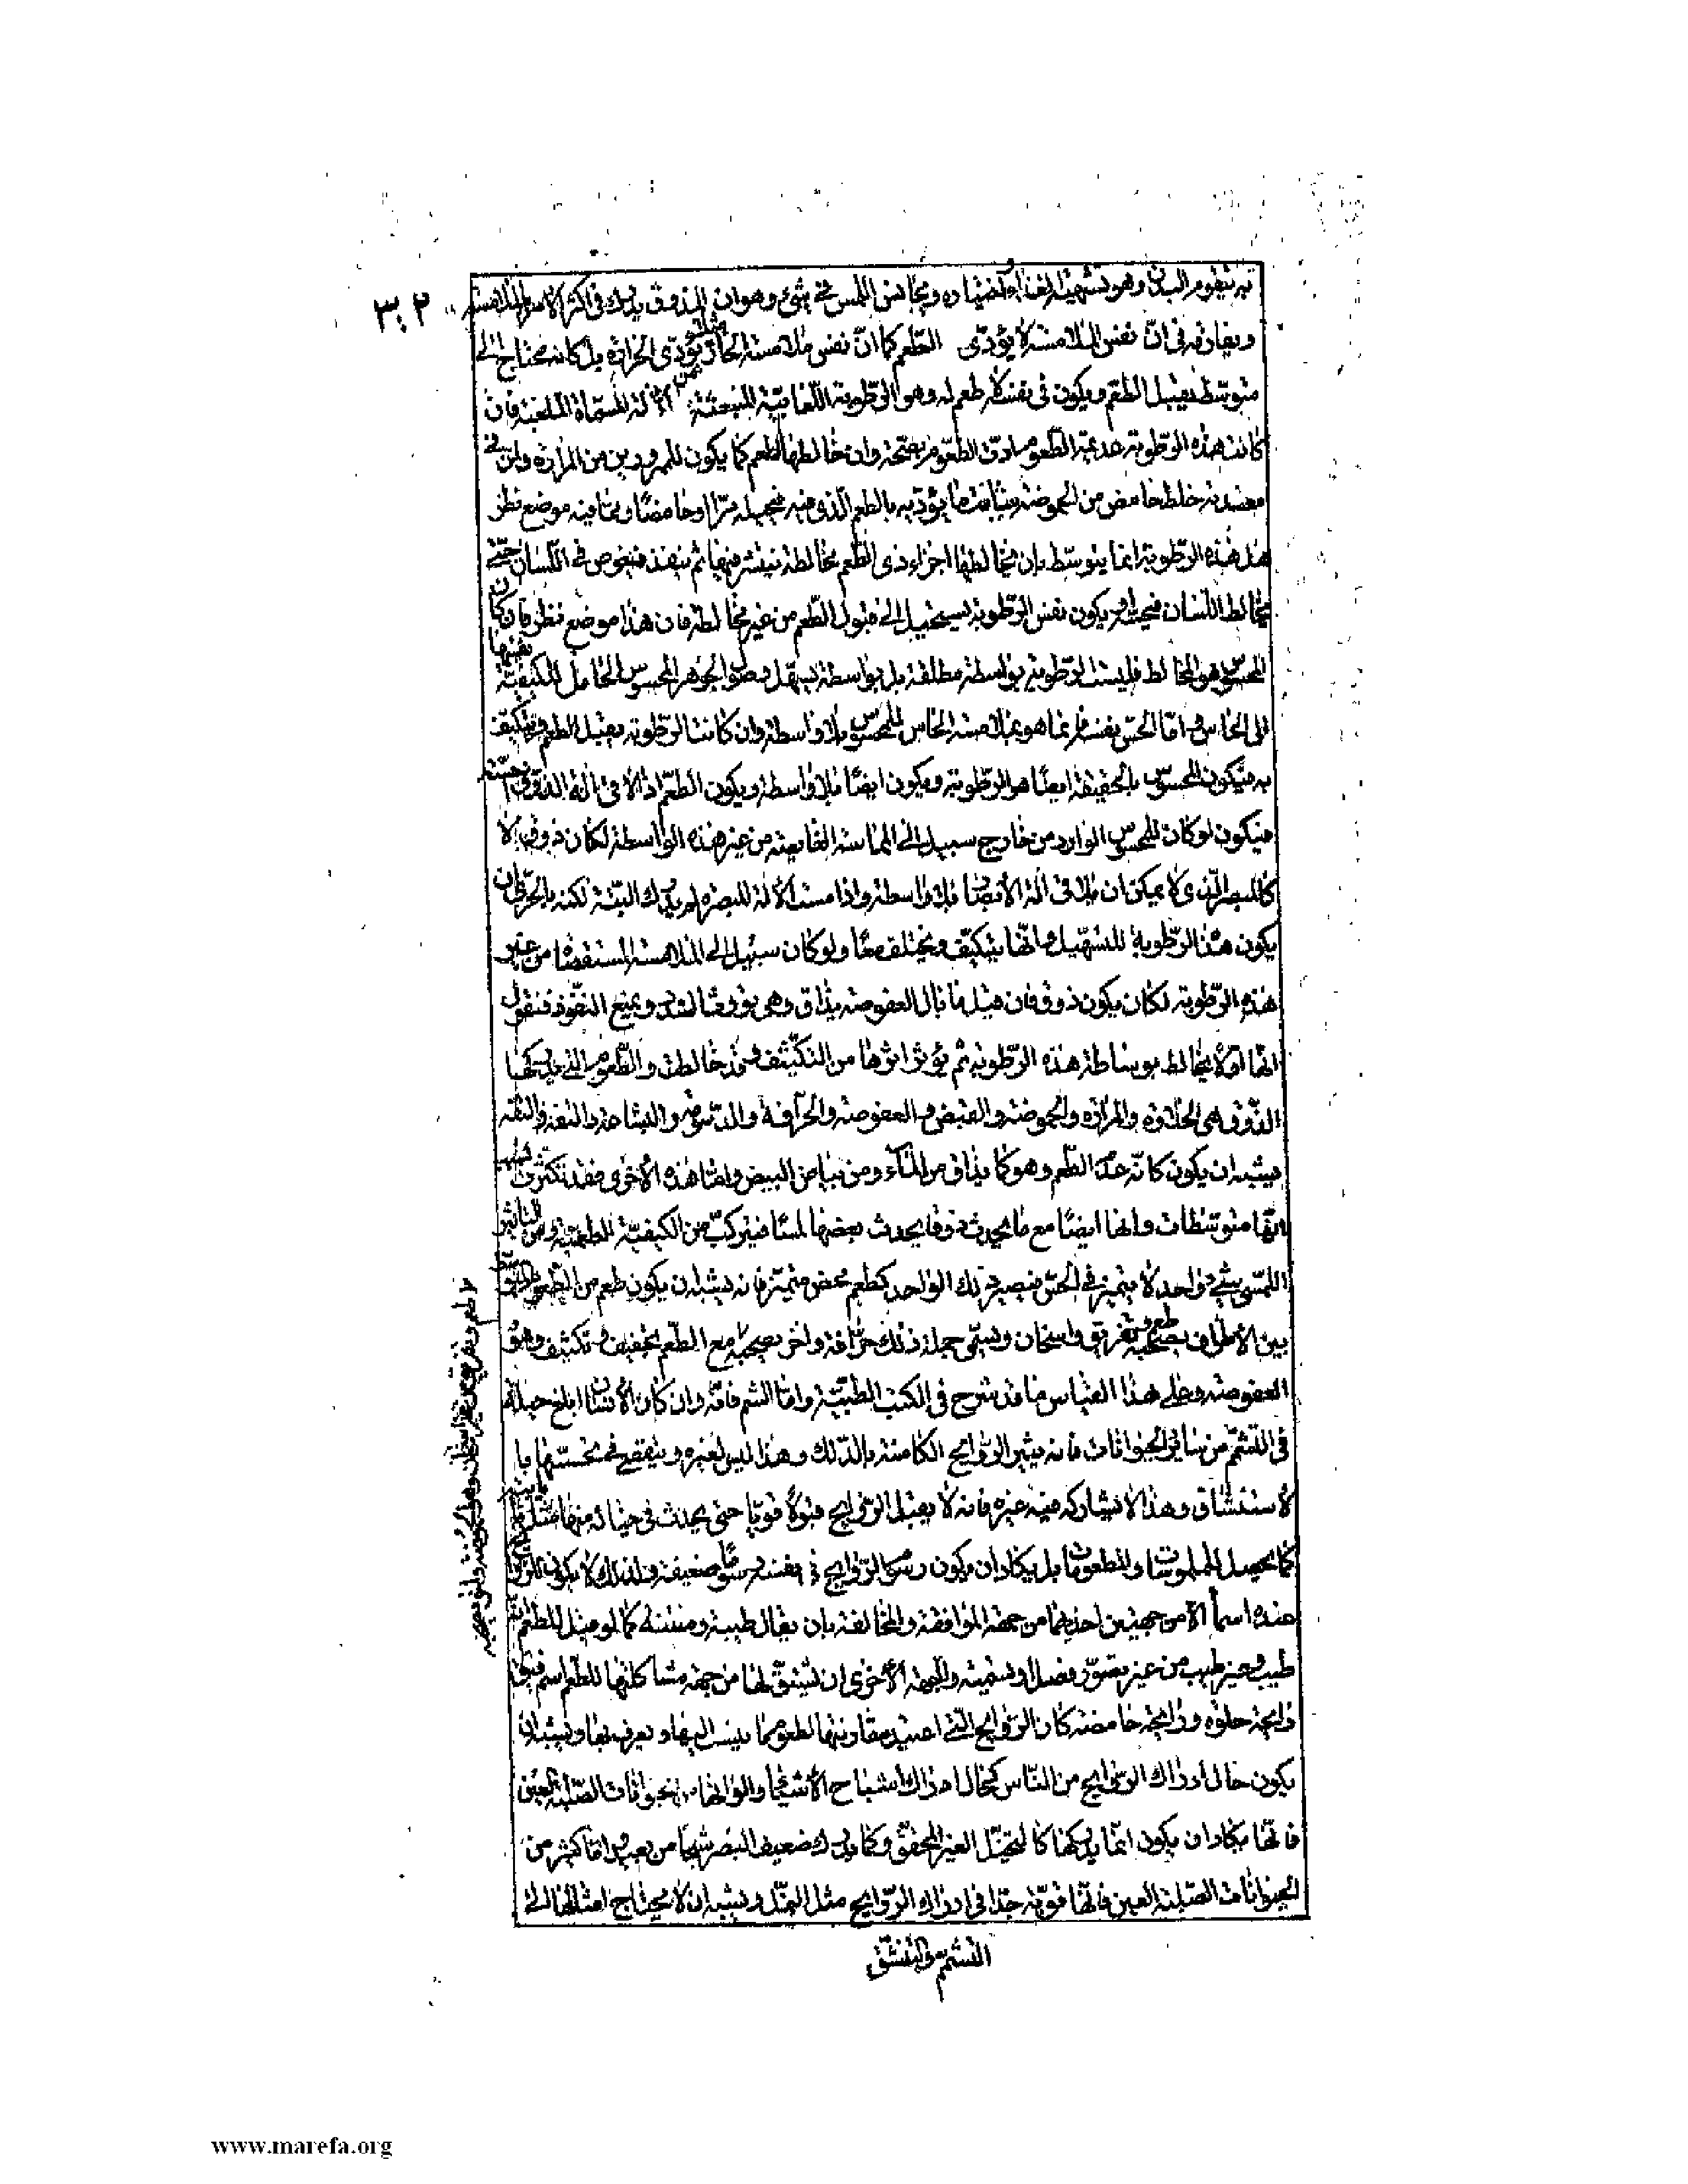 به يتقوم البدن وهو تشهية الغذاء واختياره ويجانس اللمس في شيء وهو ان المذوق يدرك في اكثر الامر بالملامسة
٣٠٢
ويفارقه في انّ نفس الملامسة لا يؤدّى الطّعم كما انّ نفس ملامسة الحارّ مثلا يؤدّى الحرارة بل كانه محتاج الى
متوسّط يقبل الطّعم ويكون في نفسه لا طعم له وهو الرّطوبة اللّعابيّة المنبعثة من الآلة المسمّاة الملعبة فان
كانت هذه الرّطوبة عديمة الطّعوم ادّت الطّعوم بصحّة وان خالطها طعم كما يكون للممرورين من المرارة ولمن في
معدته خلط حامض من الحموضة شابت ما يؤدّيه بالطعم الّذى فيه فيحيله مرّا او حامضًا وممّا فيه موضع نظر
هل هذه الرّطوبة انما يتوسّط بان يخالطها اجزاء ذى الطّعم مخالطة ينتشر فيها ثم ينفذ فيغوص في اللّسان حتّى
يخالط اللّسان فيحسّه او يكون نفس الرّطوبة يستحيل الى قبول الطّعم من غير مخالطة فان هذا موضع نظر فان كان
المحسوس هو المخالط فليست الرّطوبة بواسطة مطلقة بل بواسطة يسهّل وصول الجوهر المحسوس الحامل للكيفيّة نفسها
الى الحاسّ وامّا الحسّ نفسه فانما هو بملامسة الحاسّ للمحسوس بلا واسطة وان كانت الرّطوبة يقبل الطعم ويتكيّف
به فيكون المحسوس بالحقيقة ايضًا هو الرّطوبة ويكون ايضًا بلا واسطة ويكون الطّعم اذا لاقى آلة الذّوق احسّته
فيكون لو كان للمحسوس الوارد من خارج سبيل الى المماسّة الغايصة من غير هذه الواسطة لكان ذوق لا
كالمبصر الّذى لا يمكن ان يلاقى آلة الابصار بلا واسطة واذا مست الآلة المبصر لم يدرك البتّة لكنه بالحرّى ان
يكون هذه الرّطوبة للتسهيل وانّها يتكيّف ويختلف معًا ولو كان سبيل الى الملامسة المستقصاة من غير
هذه الرّطوبة لكان يكون ذوق فان قيل ما بال العفوصة يذاق وهى يورث السّدد ويمنع النّفوذ فنقول
انّها اوّلا يخالط بوساطة هذه الرّطوبة ثم يؤثر اثرها من التكثيف وقد خالطت والطّعوم التى يدركها
الذّوق هى الحلاوة والمرارة والحموضة والقبض والعفوصة والحرافة والدّسومة والبشاعة والتفه والتفه
يشبه ان يكون كانّه عدم الطّعم وهو كما يذاق من الماء ومن بياض البيض وامّا هذه الاخرى فقد تكثّرت بسبب
انّها متوسّطات وانّها ايضًا مع ما يحدث ذوقا يحدث بعضها لمسًا فيتركّب من الكيفيّة الطعميّة ومن التأثير
اللّمسى شيء واحد لا يتميز في الحسّ فيصير ذلك الواحد كطعم محض متميّز فانه يشبه ان يكون طعم من الطّعوم المتوسّطة
بين الاطراف يصحبه طعم وتفريق واسخان ويسمّى جملة ذلك حرافة وآخر يصحبه مع الطّعم تجفيف وتكثيف وهو
العفوصة وعلى هذا القياس ما قد شرح في الكتب الطبّيّة وامّا الشم فانّه وان كان الانسان ابلغ حيلة
في التشمّم من ساير الحيوانات فانه يثير الرّوايح الكامنة بالدّلك وهذا ليس لغيره ويتقصّى في تحسّسها با
لاستنشاق وهذا لا يشاركه فيه غيره فانه لا يقبل الرّوايح قبولاً قويّا حتى يحدث في خياله منها مثل ثابتة
كما يحصل للملموسات والمطعومات بل يكاد ان يكون رسوم الرّوايح في نفسه رسومًا ضعيفة ولذلك لا يكون للرّوايح
عنده اسماء الّا من جهتين احديهما من جهة الموافقة والمخالفة بان يقال طيبة ومنتنة كما لو قيل للطعم انّه
طيب وغير طيب من غير تصوّر فصل او تسمية والجهة الاخرى ان يشتقّ لها من جهة مشاكلتها للطّعم اسم فيقال
رايحة حلوة ورايحة حامضة كان الرّوايح الّتى اعتيد مقارنتها لطعوم ما ينسب اليها ويعرف بها ويشبه ان
يكون حال ادراك الرّوايح من النّاس كحال ادراك اشباح الاشياء والوانها من الحيوانات الصّلبة العين
فانّها يكاد ان يكون انّما يدركها كالتّخيّل الغير المحقّق وكما يدرك ضعيف البصر شبحا من بعيد وامّا كثير من
الحيوانات الصّلبة العين فانّها قويّة جدّا في ادراك الرّوايح مثل النّمل ويشبه ان لا يحتاج امثالها الى
التشمّم والتنشّق
www.marefa.org